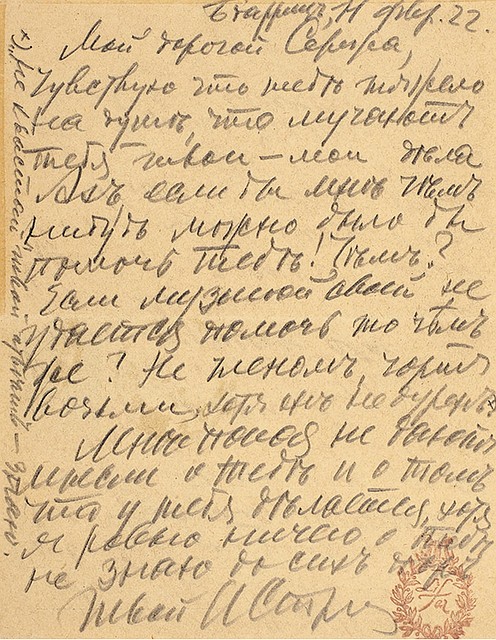 Біаррицъ, 11 февр. 22.
Мой дорогой Сережа,
Чувствую что тебѣ тяжело
на душѣ, что мучаютъ
тебя твои – мои дѣла
Ахъ если бы мнѣ чѣмъ
нибудь можно было бы
помочь тебѣ! Чѣмъ?
Если музыкой своей не
удастся помочь то чѣмъ
же? Не членомъ, чортъ
возьми, хотя онъ не дуренъ x)
Мнѣ покоя не даютъ
мысли о тебѣ и о томъ
что у тебя дѣлается, хотя
я ровно ничего о тебѣ
не знаю до сихъ поръ
Твой ИСтрав
x) „не – знаю.